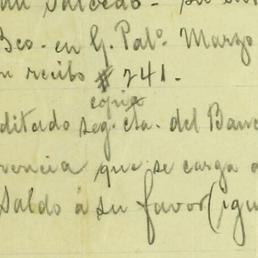 Bco. en G. Pal°. Marzo
recibo # 741.
copia
ditado seg. cta. del Banc
rencia que se carga a
saldo á su favor (igu